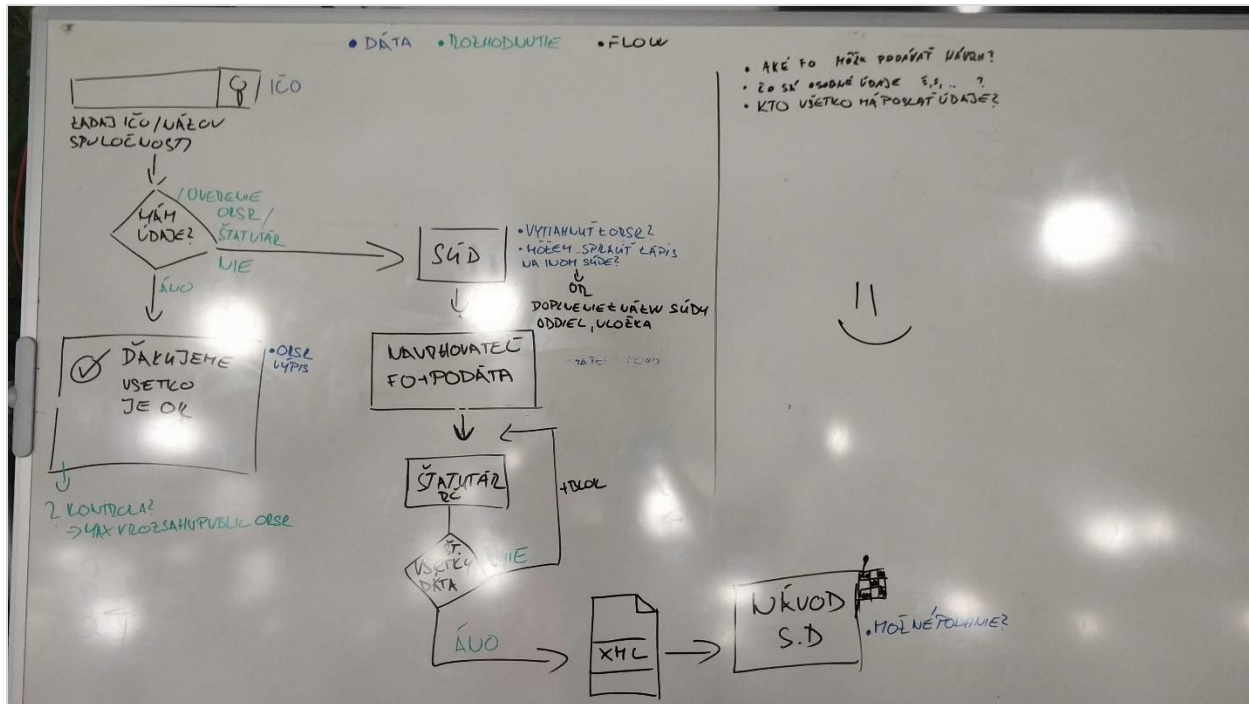 • DÁTA • ROZHODNUTIE • FLOW
IČO
ZADAJ IČO/NÁZOV
SPOLOČNOSTI
MÁM
ÚDAJE?
/OVERENIE
ORSR/
ŠTATUTÁR
NIE
ÁNO
ĎAKUJEME
VSETKO
JE OK
• ORSR
VÝPIS
? KONTROLA?
→ MAX V ROZSAHU PUBLIC ORSR
SÚD
• VYTIAHNUŤ Z ORSR?
• MÔŽEM SPRAVIŤ ZÁPIS
NA INOM SÚDE?
OR
DOPLNENIE Z NÁZVU SÚDU
ODDIEL, VLOŽKA
NAVRHOVATEĽ
FO+PO DÁTA
ŠTATUTÁR
RČ
+BLOK
ŠT.
VŠETKY
DÁTA
NIE
ÁNO
XML
NÁVOD
S.D
• MOŽNÉ PODANIE?
• AKÉ FO MÔŽU PODÁVAŤ NÁVRH?
• ČO SÚ OSOBNÉ ÚDAJE ?
• KTO VŠETKO MÁ POSLAŤ ÚDAJE?